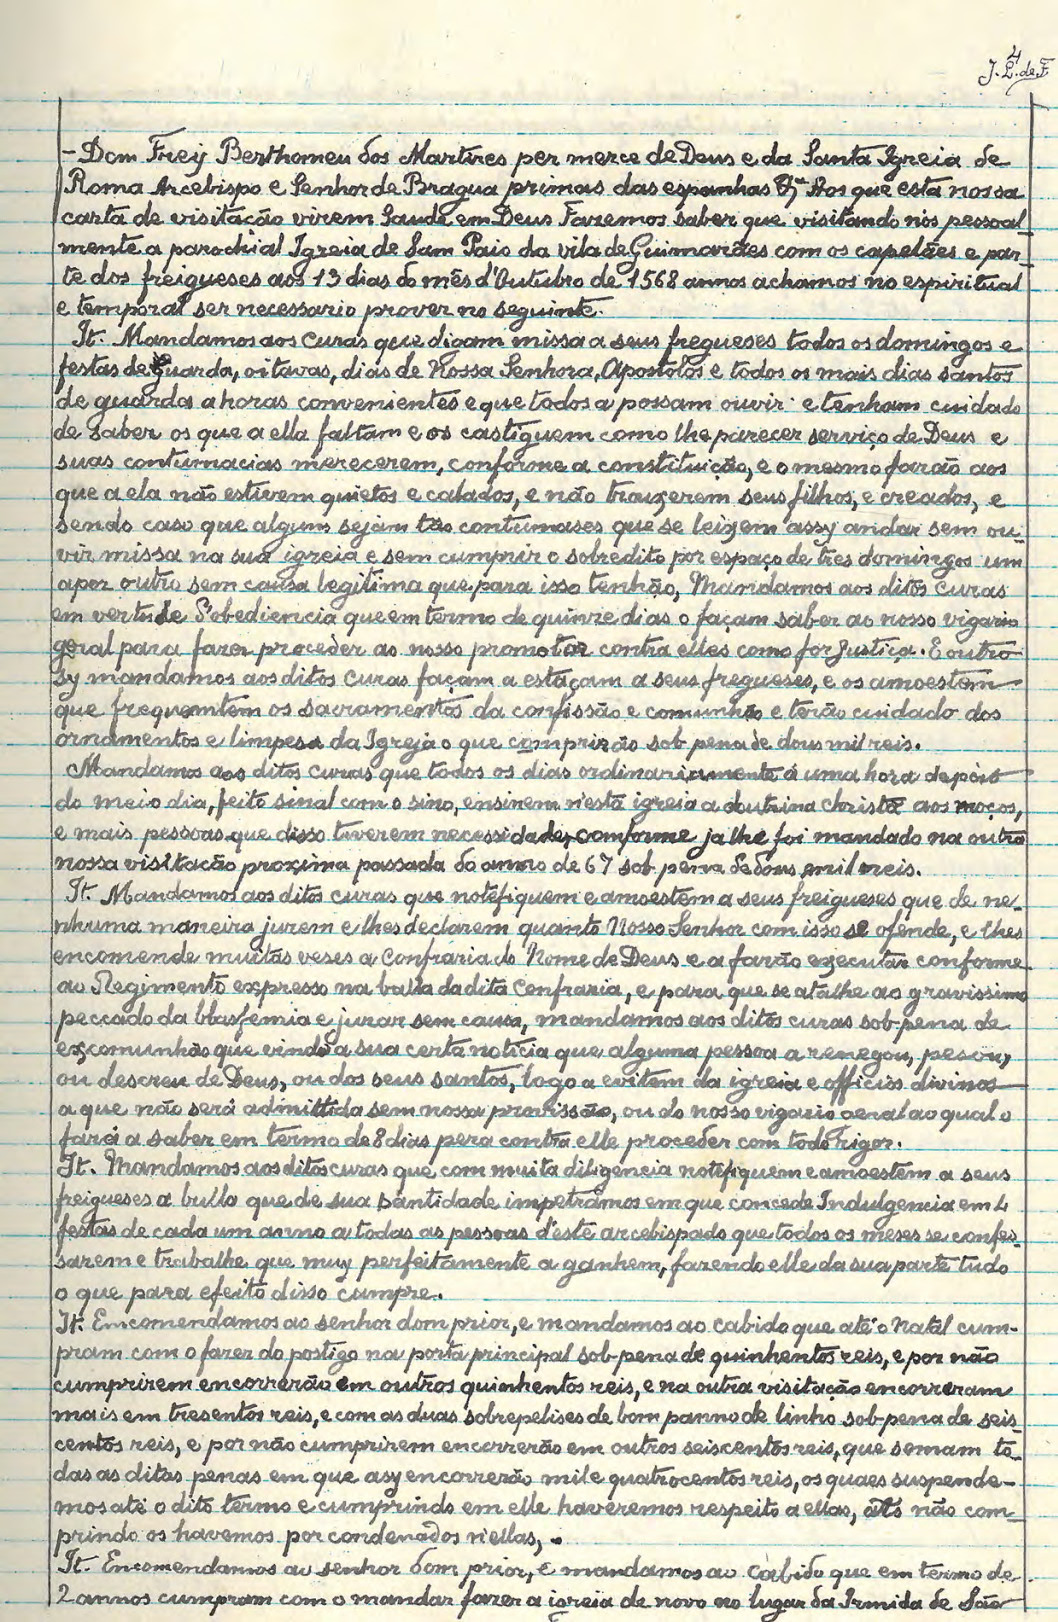 4
J. L. de F.
- Dom Frey Berthomeu dos Martires per merce de Deus e da Santa Igreia de
Roma Arcebispo e Senhor de Bragua primas das espanhas &ª Aos que esta nossa
carta de visitação virem Saude em Deus Fazemos saber que visitando nós pessoal-
mente a parochial Igreia de Sam Paio da vila de Guimarães com os capelães e par-
te dos freigueses aos 13 dias do mês d'Outubro de 1568 annos achamos no espiritual
e temporal ser necessario prover no seguinte.
It. Mandamos aos curas que digam missa a seus fregueses todos os domingos e
festas de guarda, oitavas, dias de Nossa Senhora, Apostolos e todos os mais dias santos
de guarda a horas convenientes e que todos a possam ouvir e tenham cuidado
de saber os que a ella faltam e os castiguem como lhe parecer serviço de Deus e
suas contumacias merecerem, conforme a constituição, e o mesmo farão aos
que a ela não estivem quietos e calados, e não trouxerem seus filhos, e creados, e
sendo caso que alguns sejam tão contumases que se leixem assy andar sem ou-
vir missa na sua igreia e sem cumprir o sobredito por espaço de tres domingos um
apor outro sem causa legitima que para isso tenhão, Mandamos aos ditos curas
em vertude d'obediencia que em termo de quinze dias o façam saber ao nosso vigario
geral para fazer proceder ao nosso promotor contra elles como for Justiça. E outro
sy mandamos aos ditos curas façam a estaçam a seus fregueses, e os amoestem
que frequemtem os sacramentos da confissão e comunhão e terão cuidado dos
ornamentos e limpesa da Igreja o que comprirão sob pena de dous mil reis.
Mandamos aos ditos curas que todos os dias ordinariamente á uma hora depois
do meio dia, feito sinal com o sino, ensinem n'esta igreia a doutrina christã aos moços,
e mais pessoas que disso tiverem necessidade, comforme ja lhe foi mandado na outra
nossa visitação proxima passada do anno de 67 sob pena de dous mil reis.
It. Mandamos aos ditos curas que notefiquem e amoestem a seus freigueses que de ne-
nhuma maneira jurem e lhes declarem quanto Nosso Senhor com isso se ofende, e lhes
encomende muitas veses a Confraria do Nome de Deus e a farão executar conforme
ao Regimento expresso na bulla da dita Confraria, e para que se atalhe ao gravissimo
peccado da blasfemia e jurar sem causa, mandamos aos ditos curas sob pena de
excomunhão que vindo a sua certa noticia que alguma pessoa arenegou, pesou,
ou descreu de Deus, ou dos seus santos, logo a evitem da igreia e officios divinos
a que não será admittida sem nossa provissão, ou do nosso vigario geral ao qual o
fará a saber em termo de 8 dias pera contra elle proceder com todo rigor.
It. Mandamos aos ditos curas que com muita diligencia notefiquem e amoestem a seus
freigueses a bulla que de sua Santidade impetrámos em que concede Indulgencia em 4
festas de cada um anno a todas as pessoas d'este arcebispado que todos os meses se confes-
sarem e trabalhe que muy perfeitamente a ganhem, fazendo elle da sua parte tudo
o que para efeito disso cumpre.
It. Emcomendamos ao senhor dom prior, e mandamos ao cabido que até o Natal cum-
pram com o fazer do postigo na porta principal sob pena de quinhentos reis, e por não
cumprirem encorrerão em outros quinhentos reis, e na outra visitação encorreram
mais em tresentos reis, e com as duas sobrepelises de bom panno de linho sob pena de seis-
centos reis, e por não cumprirem encorrerão em outros seiscentos reis, que somam to-
das as ditas penas em que asy encorrerão mil e quatrocentos reis, os quaes suspende-
mos até o dito termo e cumprindo em elle haveremos respeito a ellas, não com-
prindo os havemos por condenados n'ellas,.
It. Encomendamos ao senhor dom prior, e mandamos ao Cabido que em termo de
2 annos cumpram com o mandar fazer a igreia de novo no lugar da Irmida de São